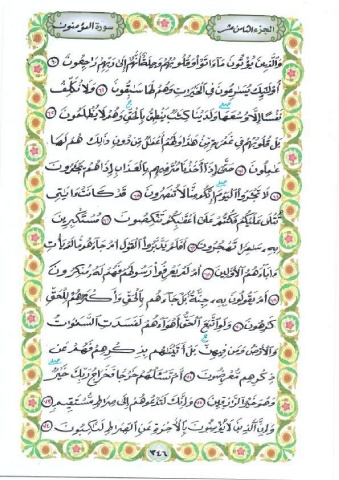 الجزء الثامن عشر
سورة المؤمنون
وَالَّذِينَ يُؤْتُونَ مَا ءَاتَوا وَّقُلُوبُهُمْ وَجِلَةٌ أَنَّهُمْ إِلَىٰ رَبِّهِمْ رَٰجِعُونَ ٦٠
أُوْلَٰٓئِكَ يُسَٰرِعُونَ فِي الْخَيْرَٰتِ وَهُمْ لَهَا سَٰبِقُونَ ٦١ وَلَا نُكَلِّفُ
نَفْسًا إِلَّا وُسْعَهَا وَلَدَيْنَا كِتَٰبٌ يَنطِقُ بِالْحَقِّ وَهُمْ لَا يُظْلَمُونَ ٦٢
بَلْ قُلُوبُهُمْ فِي غَمْرَةٍ مِّنْ هَٰذَا وَلَهُمْ أَعْمَٰلٌ مِّن دُونِ ذَٰلِكَ هُمْ لَهَا
عَٰمِلُونَ ٦٣ حَتَّىٰٓ إِذَآ أَخَذْنَا مُتْرَفِيهِم بِالْعَذَابِ إِذَا هُمْ يَجْـَٔرُونَ
٦٤ لَا تَجْـَٔرُوا الْيَوْمَ إِنَّكُم مِّنَّا لَا تُنصَرُونَ ٦٥ قَدْ كَانَتْ ءَايَٰتِي
تُتْلَىٰ عَلَيْكُمْ فَكُنتُمْ عَلَىٰٓ أَعْقَٰبِكُمْ تَنكِصُونَ ٦٦ مُسْتَكْبِرِينَ
بِهِ سَٰمِرًا تَهْجُرُونَ ٦٧ أَفَلَمْ يَدَّبَّرُوا الْقَوْلَ أَمْ جَآءَهُم مَّا لَمْ يَأْتِ
ءَابَآءَهُمُ الْأَوَّلِينَ ٦٨ أَمْ لَمْ يَعْرِفُوا رَسُولَهُمْ فَهُمْ لَهُ مُنكِرُونَ
٦٩ أَمْ يَقُولُونَ بِهِ جِنَّةٌ بَلْ جَآءَهُم بِالْحَقِّ وَأَكْثَرُهُمْ لِلْحَقِّ
كَٰرِهُونَ ٧٠ وَلَوِ اتَّبَعَ الْحَقُّ أَهْوَآءَهُمْ لَفَسَدَتِ السَّمَٰوَٰتُ
وَالْأَرْضُ وَمَن فِيهِنَّ بَلْ أَتَيْنَٰهُم بِذِكْرِهِمْ فَهُمْ عَن
ذِكْرِهِم مُّعْرِضُونَ ٧١ أَمْ تَسْـَٔلُهُمْ خَرْجًا فَخَرَاجُ رَبِّكَ خَيْرٌ
وَهُوَ خَيْرُ الرَّٰزِقِينَ ٧٢ وَإِنَّكَ لَتَدْعُوهُمْ إِلَىٰ صِرَٰطٍ مُّسْتَقِيمٍ ٧٣
وَإِنَّ الَّذِينَ لَا يُؤْمِنُونَ بِالْءَاخِرَةِ عَنِ الصِّرَٰطِ لَنَٰكِبُونَ ٧٤
٣٤٦